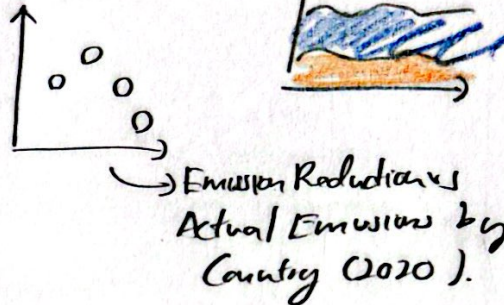 Emission Reduction vs
Actual Emissions by
Country (2020).